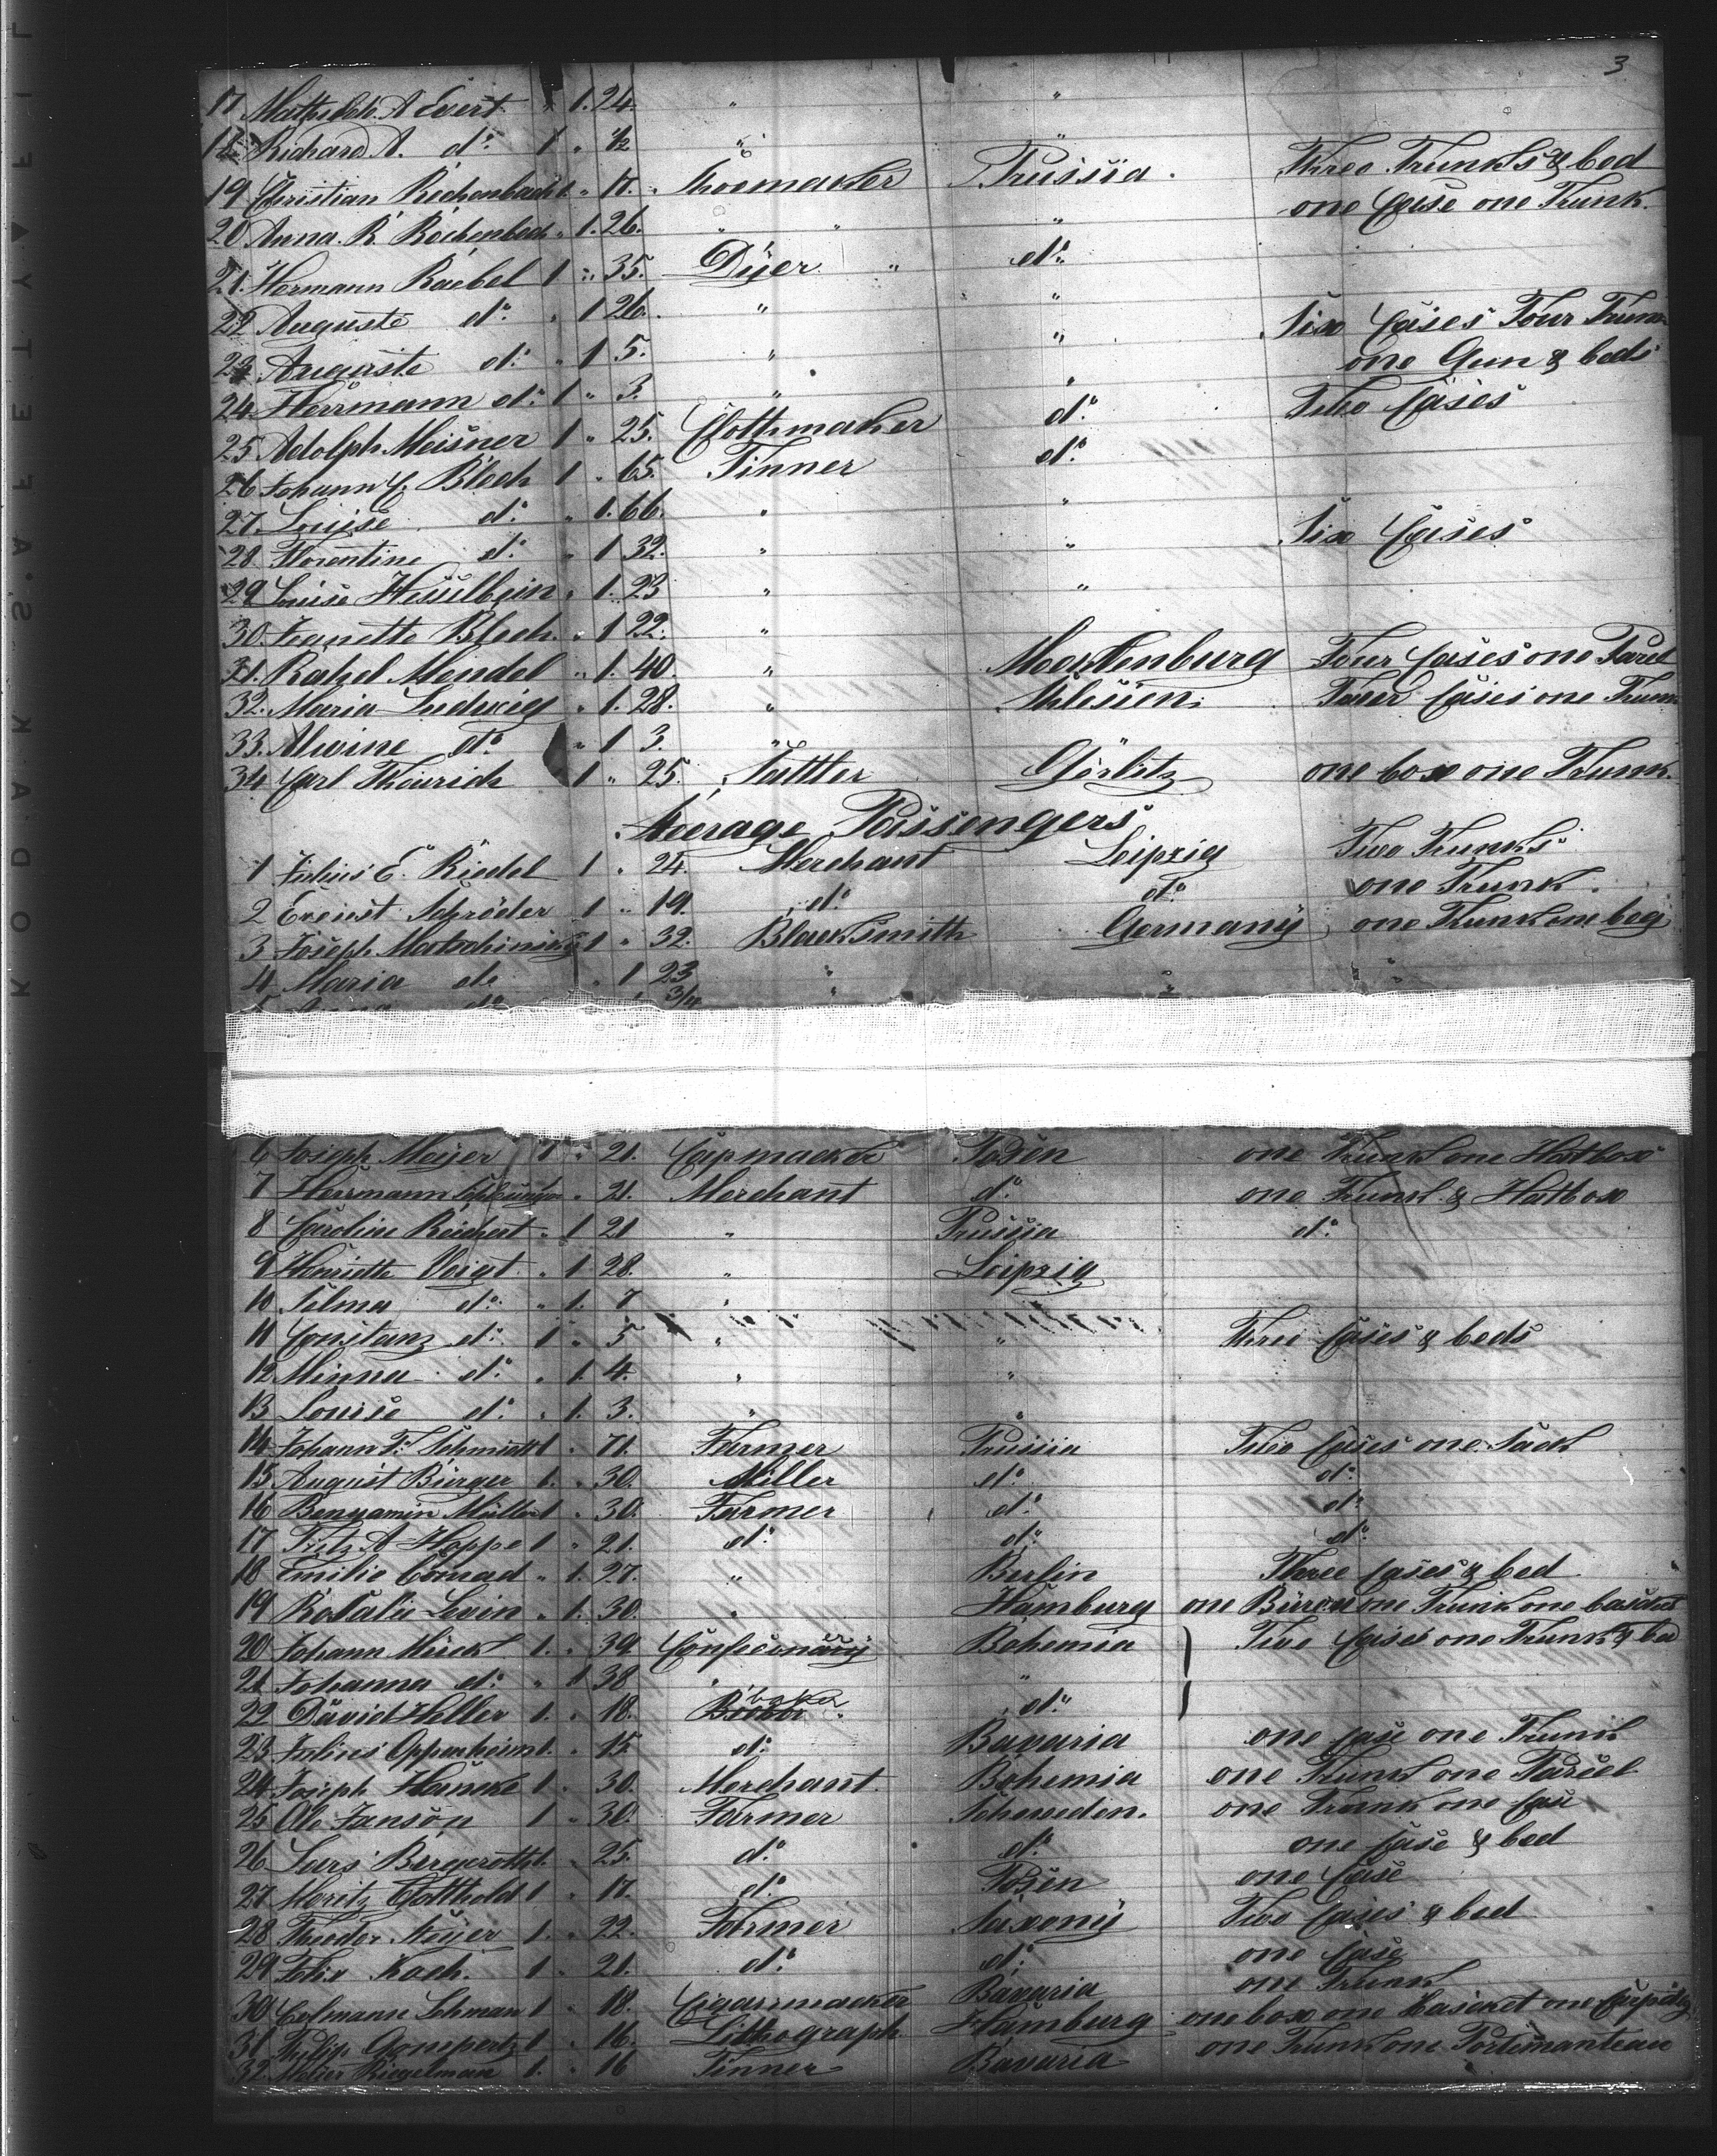 3
17 A Evert " 1. 24. " "
18. Richard A. do. 1 " 1/2 " "
19 Christian Reichenbach 1. " Shoemaker Prussia. Three Trunks & bed
20 Anna. R. Reichenbach " 1. 26. " " " one Case one Trunk.
21. Hermann Raebel 1 " 35. Dyer " do.
22 Auguste do. " 1 26. " " Six Cases Four Trunks
23 Auguste do. " 1 5. " " one Gun & beds
24 Herrmann do. 1 " 3. " "
25 Adolph Meisner 1 " 25. Clothmaker do. Two Cases
26 Johann C. Bloch 1 " 65. Tinner do.
27. Louise do. " 1. 66. " "
28. Florentine do. " 1 32. " " Six Cases
29 Louise Hesselbein " 1. 23 " "
30. Jeanette Bloch. " 1 22. "
31. Rahel Mendel " 1. 40. " Four Cases one
32. Maria Ludwig " 1. 28. " Schlesien. Four Cases one Trunk
33. Alwine do. " 1 3. "
34 Carl 1 " 25. Sattler Görlitz one box one Trunk.
Steerage Passengers
1 Julius E. Riedel 1 " 24. Merchant Leipzig Two Trunks
2 Schröder 1 " 19. do. do. one Trunk.
3 Joseph 1 " 32. Blacksmith Germany one Trunk one bag
4 Maria do " 1 23 " " "
5 do 3/4
6 Joseph Meijer 1 " 21. Capmacker Posen one Trunk one Hatbox
7 Herrmann " 21. Merchant do. one Trunk & Hatbox
8 Caroline Reichert " 1 21 " Prussia do.
9 Henriette Voigt. " 1 28. " Leipzig
10 Selma do. " 1. 7 "
11 Constanz do. 1 " 5 " " Three Cases & beds
12 Minna do. " 1. 4. " "
13 Louise do. " 1. 3. "
14 Johann F. Schmidt 1 " 71. Farmer Prussia Two Cases one Sack
15 August Bürger 1. " 30. Miller do. do.
16 Benyamin Müller 1 " 30. Farmer do. do.
17 Fritz A Hoppe 1 " 21. do. do. do.
18 Emilie Conrad " 1. 27. " Berlin Three Cases & bed
19 Rosalie Levin " 1. 30. " Hamburg one Büreau one Trunk one bascket
20 Johann 1. " 39. Bohemia Two Cases one Trunk & bed
21 Johanna do. " 1 38 " "
22 David Heller 1. " 18. baker do.
23 Julius Oppenheim 1. " 15. do. Bavaria one case one Trunk
24 Joseph Hancke 1 " 30. Merchant. Bohemia one Trunk one Parcel
25 Ole Janson 1 " 30. Farmer Schweden. one Trunk one Case
26 Lars Bergeroth 1. " 25. do. do. one Case & bed
27 Moritz Gotthold 1 " 17. do. Posen one Case
28 Theodor Meijer 1. " 22. Farmer Saxony Two Cases & bed
29 Felix Koch. 1 " 21. do. do. one Case
30 Colmann Lehman 1 " 18. Cigarrmacker Bavaria one Trunk
31 Philip Gompertz 1 " 16. Lithograph Hamburg one box one bascket one
32. Meier Riegelman 1. " 16 Tinner Bavaria one Trunk one Portemanteau
KODAK SAFETY FIL